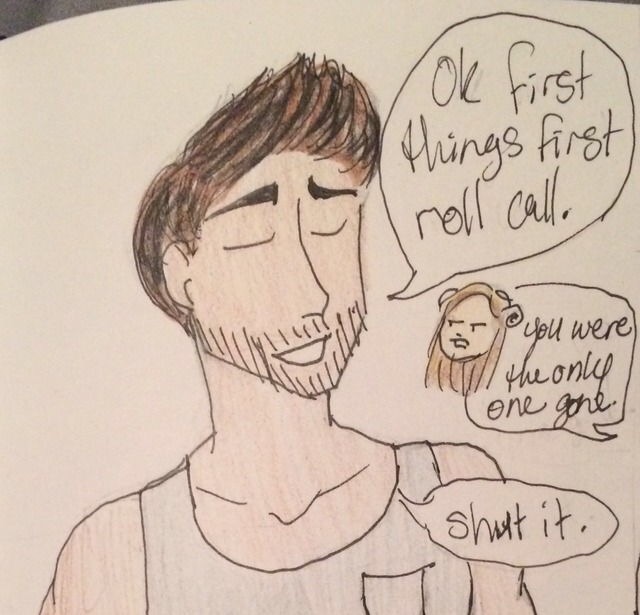 Ok first
things first
roll call.
you were
the only
one gone.
Shut it.